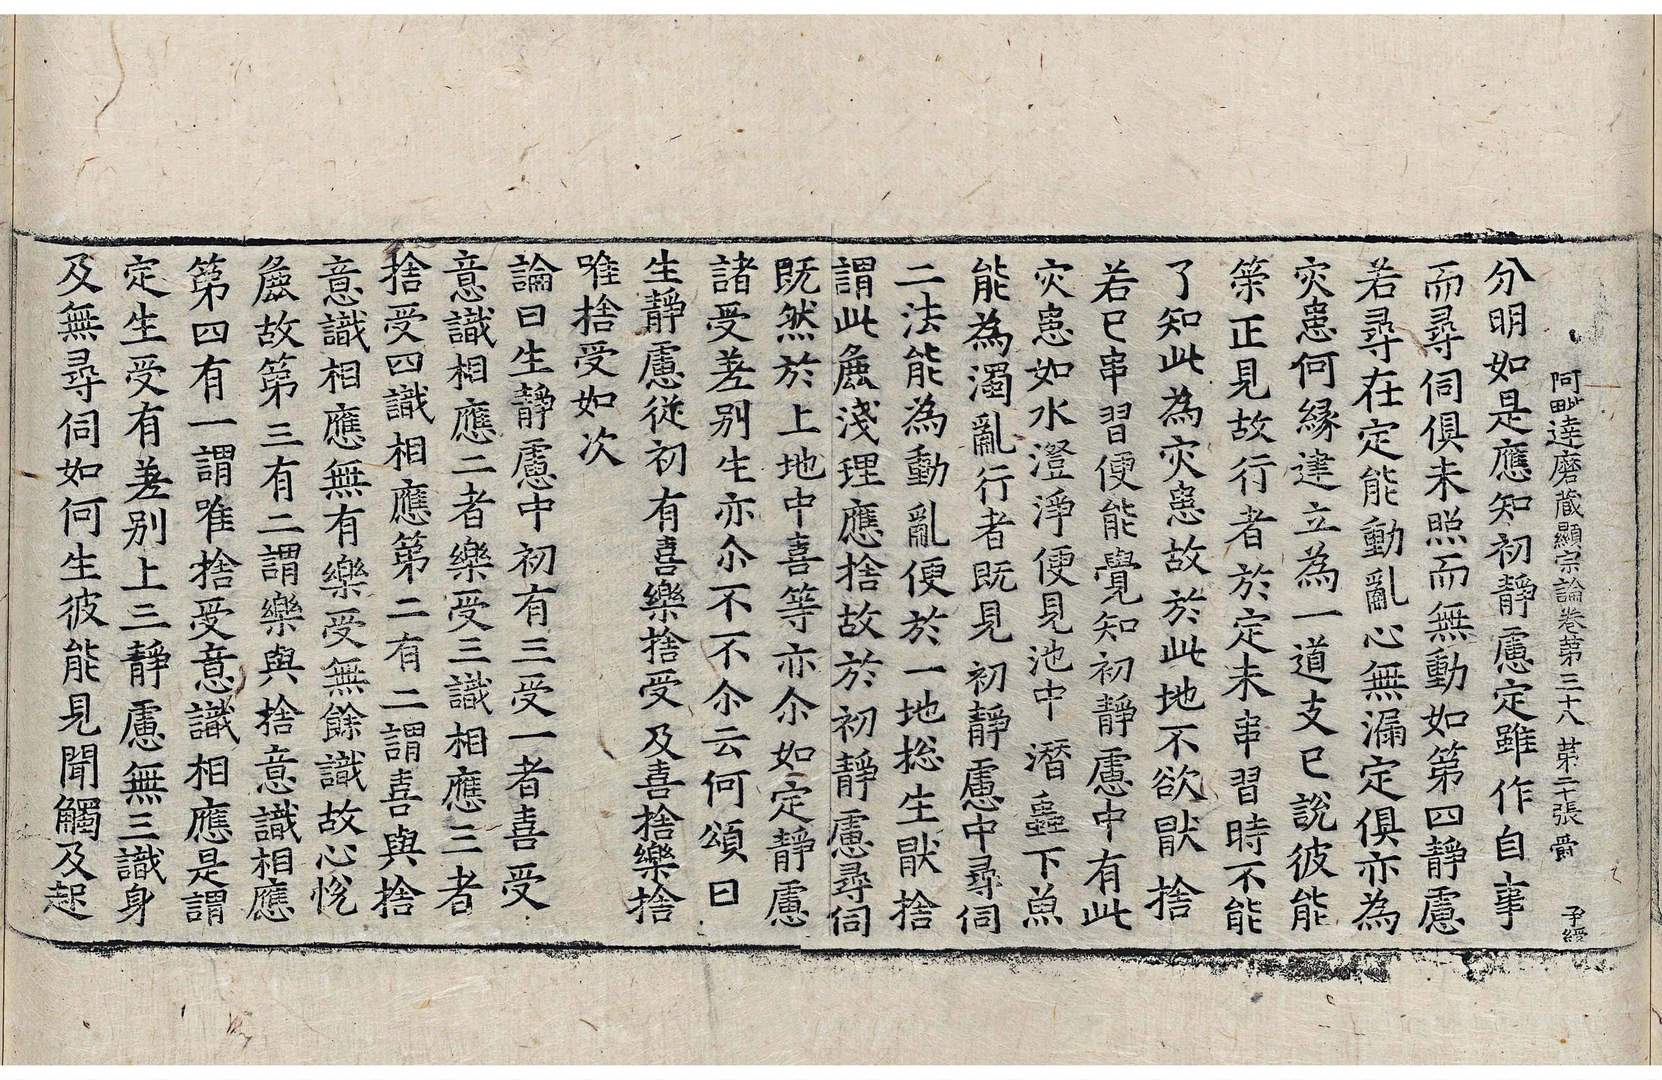 阿毗達磨藏顯宗論卷第三十八 第二十張 爵
分明如是應知初靜慮定雖作自事
而尋伺俱未照而無動如第四靜慮
若尋在定能動亂心無漏定俱亦為
灾患何緣建立為一道支已說彼能
䇿正見故行者於定未串習時不能
了知此為灾患故於此地不欲猒捨
若已串習便能覺知初靜慮中有此
灾患如水澄淨便見池中潛蟲下魚
能為濁亂行者既見初靜慮中尋伺
二法能為動亂便於一地捴生猒捨
謂此麁淺理應捨故於初靜慮尋伺
既然於上地中喜等亦尒如定靜慮
諸受差别生亦尒不不尒云何頌曰
生靜慮從初 有喜樂捨受 及喜捨樂捨
唯捨受如次
論曰生靜慮中初有三受一者喜受
意識相應二者樂受三識相應三者
捨受四識相應第二有二謂喜與捨
意識相應無有樂受無餘識故心悅
麁故第三有二謂樂與捨意識相應
第四有一謂唯捨受意識相應是謂
定生受有差别上三靜慮無三識身
及無尋伺如何生彼能見聞觸及起